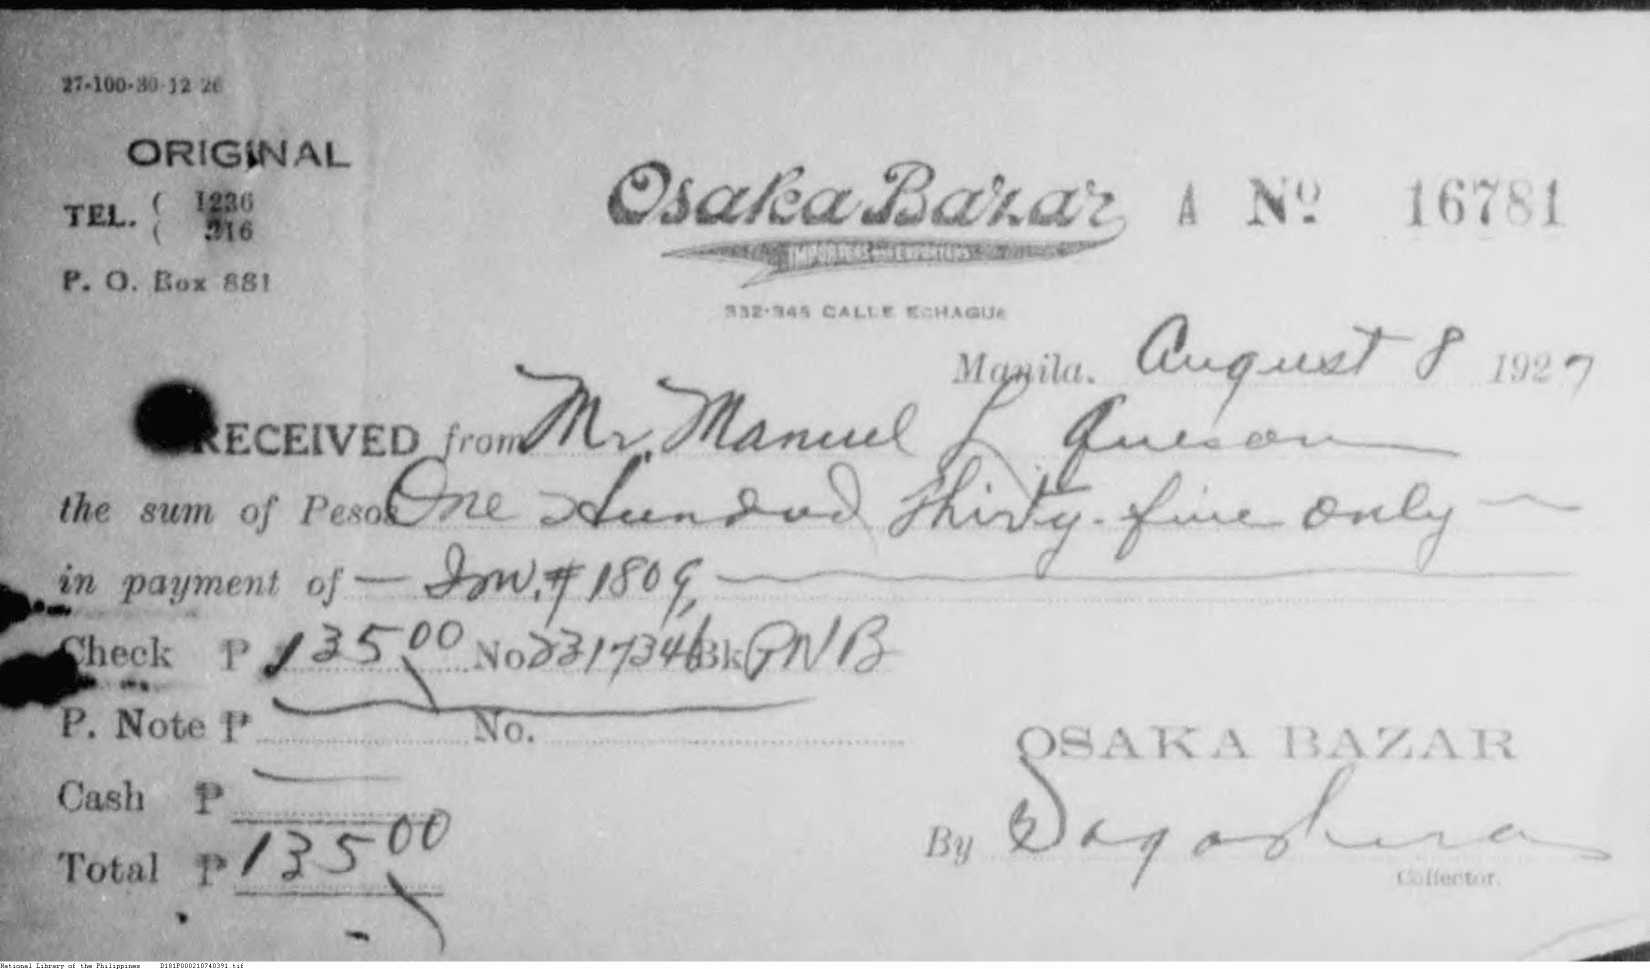 27-100-30-12 26
ORIGINAL
TEL. ( 1236
( 316
P. O. Box 881
Osaka Bazar
IMPORTERS AND EXPORTERS
A Nº 16781
332-345 CALLE ECHAGUE
Manila. August 8 1927
RECEIVED from Mr. Manuel L Queson
the sum of Pesos One Hundred Thirty-five only
in payment of — Inv. # 1809,
Check ₱ 135.00 No 2317346 Bk PNB
P. Note ₱ No.
Cash ₱
Total ₱ 135.00
OSAKA BAZAR
By
Collector.
National Library of the Philippines D181P000210740391.tif